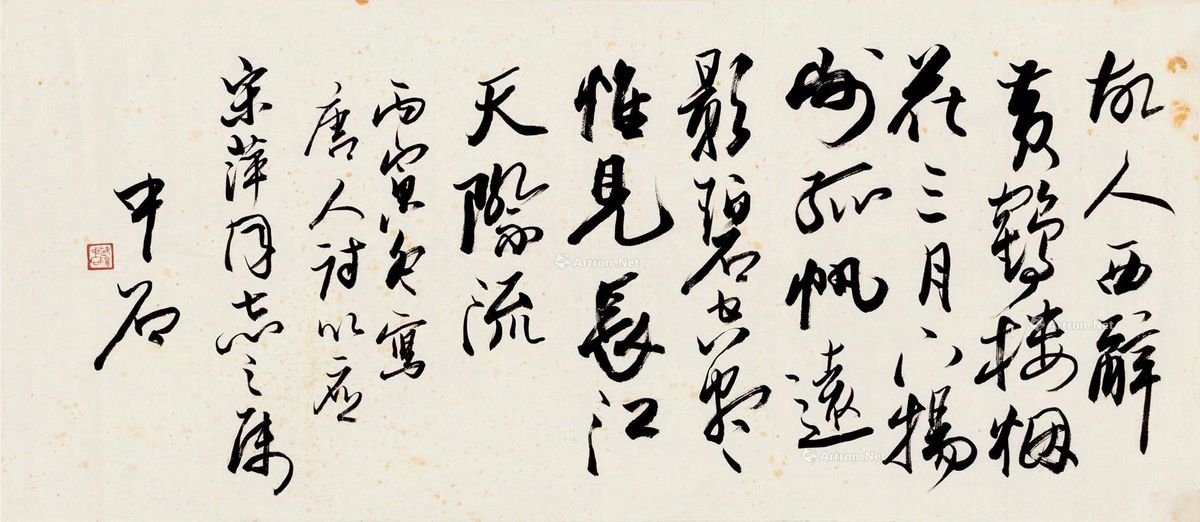 故人西辭
黃鶴樓烟
花三月下揚
州孤帆遠
影碧空盡
惟見長江
天際流
丙寅冬寫
唐人詩以應
宋萍同志之屬
中石
Artron.Net
Artron.Net
Artron.Net
Artron.Net